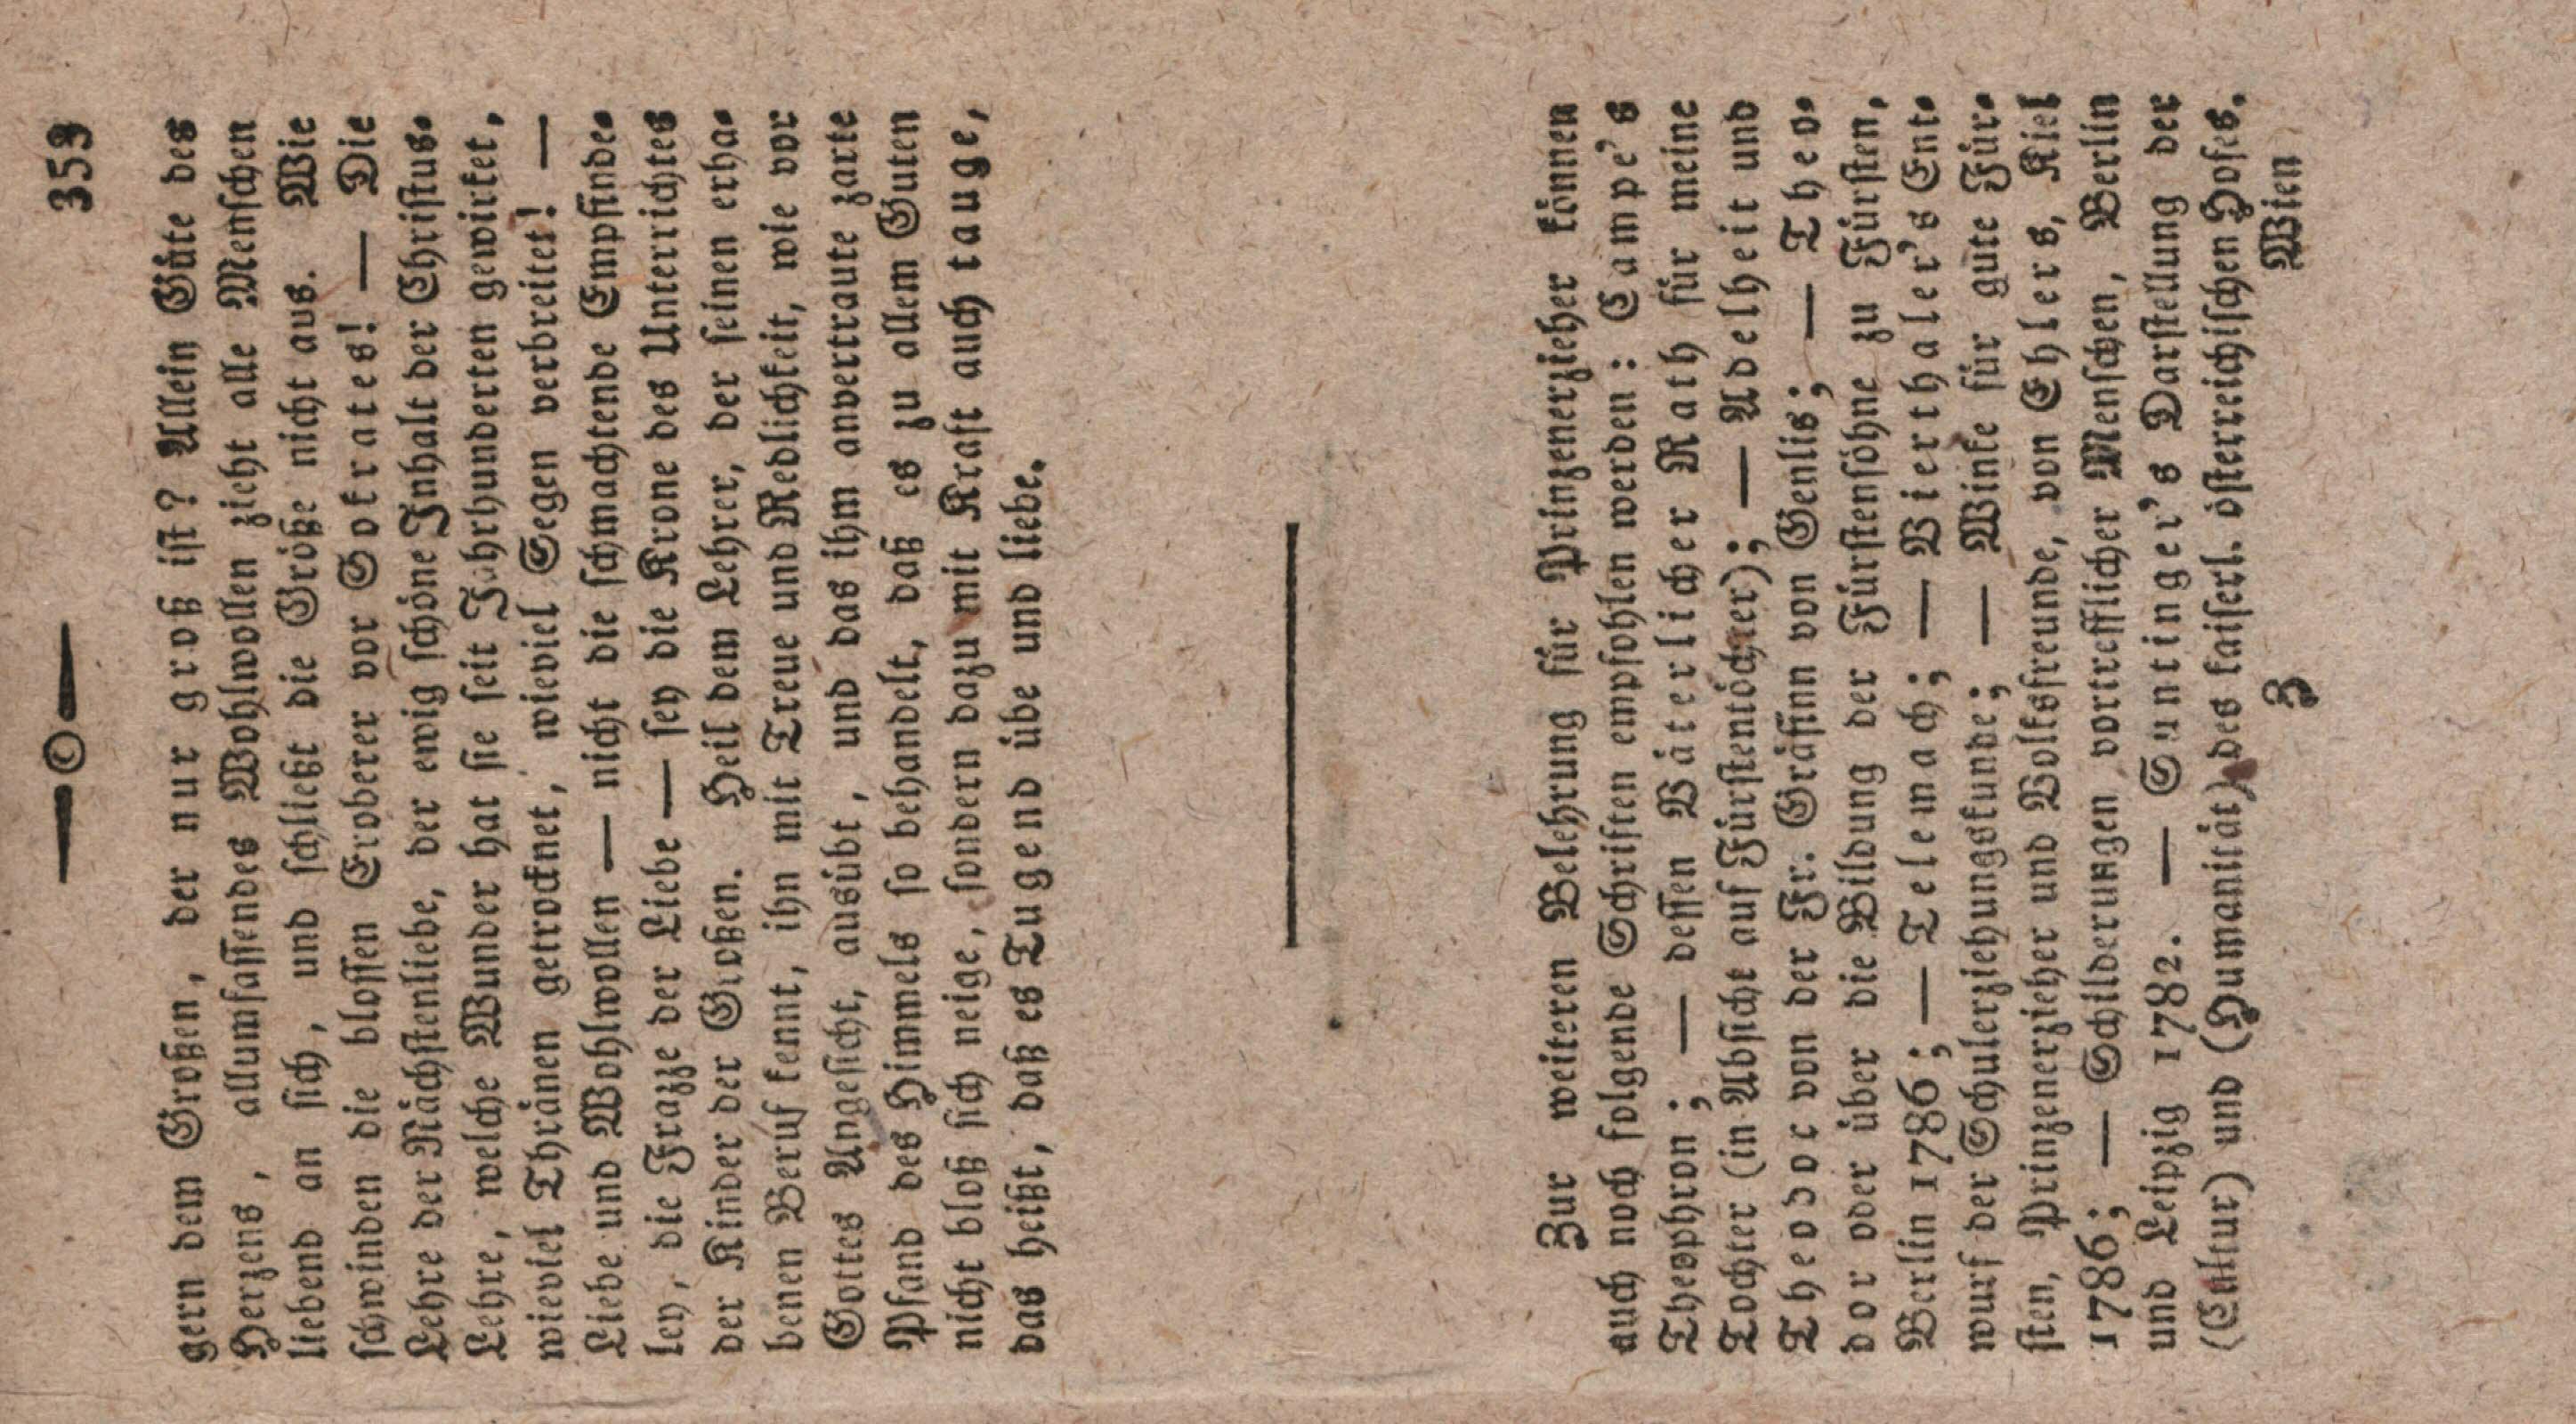 353
gern dem Großen, der nur groß ist? Allein Güte des
Herzens, allumfassendes Wohlwollen zieht alle Menschen
liebend an sich, und schließt die Größe nicht aus. Wie
schwinden die blossen Eroberer vor Sokrates! — Die
Lehre der Nächstenliebe, der ewig schöne Inhalt der Christus-
Lehre, welche Wunder hat sie seit Jahrhunderten gewirket,
wieviel Thränen getrocknet, wieviel Segen verbreitet! —
Liebe und Wohlwollen — nicht die schmachtende Empfinde-
ley, die Frazze der Liebe — sey die Krone des Unterrichtes
der Kinder der Großen. Heil dem Lehrer, der seinen erha-
benen Beruf kennt, ihn mit Treue und Redlichkeit, wie vor
Gottes Angesicht, ausübt, und das ihm anvertraute zarte
Pfand des Himmels so behandelt, daß es zu allem Guten
nicht bloß sich neige, sondern dazu mit Kraft auch tauge,
das heißt, daß es Tugend übe und liebe.
Zur weiteren Belehrung für Prinzenerzieher können
auch noch folgende Schriften empfohlen werden: Campe's
Theophron; — dessen Väterlicher Rath für meine
Tochter (in Absicht auf Fürstentöchter); — Adelheit und
Theodor von der Fr. Gräfinn von Genlis; — Theo-
dor oder über die Bildung der Fürstensöhne zu Fürsten,
Berlin 1786; — Telemach; — Vierthaler's Ent-
wurf der Schulerziehungskunde; — Winke für gute Für-
sten, Prinzenerzieher und Volksfreunde, von Ehlers, Kiel
1786; — Schilderungen vortrefflicher Menschen, Berlin
und Leipzig 1782. — Guntinger's Darstellung der
(Cultur) und (Humanität) des kaiserl. österreichischen Hofes.
Z Wien